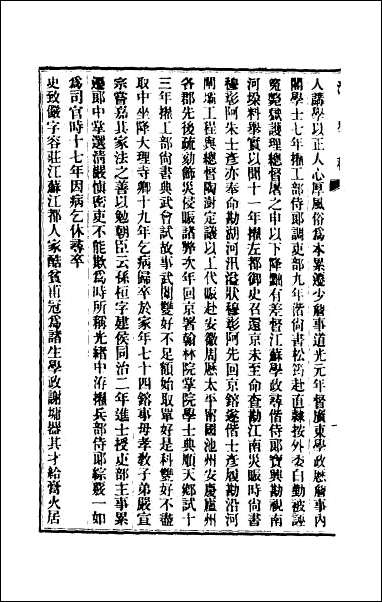 人講學以正人心厚風俗為本累遷少詹事道光元年督廣東學政歷詹事內
閣學士七年擢工部侍郎調吏部九年偕尚書松筠赴直隸按外委白勤被誣
冤斃獄護理總督屠之申以下降黜有差督江蘇學政尋偕侍郎寶興勘視南
河垛料舉實以聞十一年擢左都御史召還京未至命查勘江南災賑時尚書
穆彰阿朱士彥亦奉命勘湖河汛溢狀穆彰阿先回京鎔遂偕士彥履勘沿河
閘壩工程與總督陶澍定議以工代賑赴安徽周歷太平甯國池州安慶廬州
各郡先後疏劾飾災侵賑諸弊次年回京署翰林院掌院學士典順天鄉試十
三年擢工部尚書典武會試故事武闈雙好不足額始取單好是科雙好不盡
取中坐降大理寺卿十九年乞病歸卒於家年七十四鎔事母孝教子弟嚴宣
宗嘗嘉其家法之善以勉朝臣云孫桓字建侯同治二年進士授吏部主事累
遷郎中掌選清嚴慎密吏不能欺為時所稱光緒中洊擢兵部侍郎綜覈一如
為司官時十七年因病乞休尋卒
史致儼字容莊江蘇江都人家酷貧甫冠為諸生學政謝墉器其才給膏火居